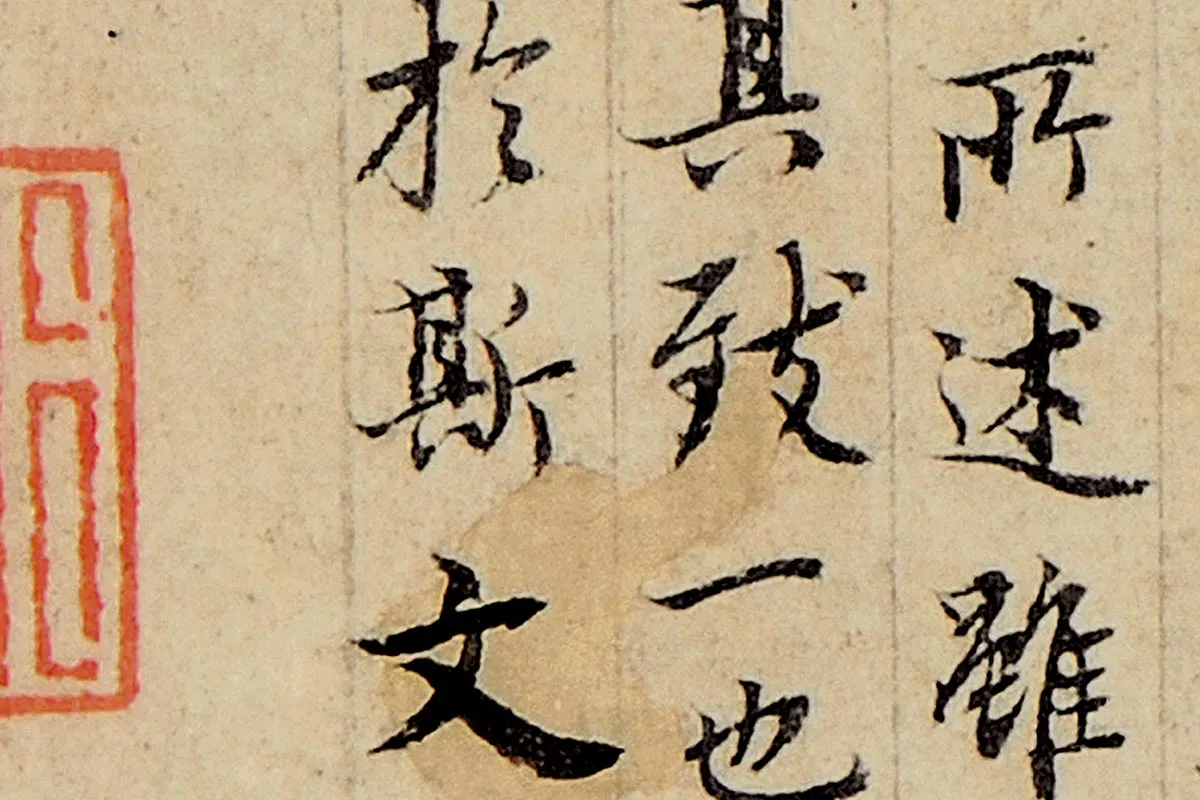 所述雖
其致一也
於斯文